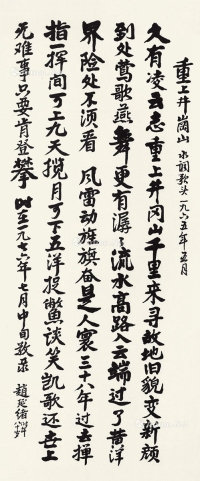 重上井崗山 水调歌头 一九六五年五月
久有凌云志重上井冈山千里来寻故地旧貌变新颜
到处莺歌燕舞更有潺々流水高路入云端过了黄洋
界险处不须看 风雷动旌旗奋是人寰三十八年过去弹
指一挥间可上九天揽月可下五洋捉鳖谈笑凯歌还世上
无难事只要肯登攀 一九七六年七月中旬敬录 趙延緒